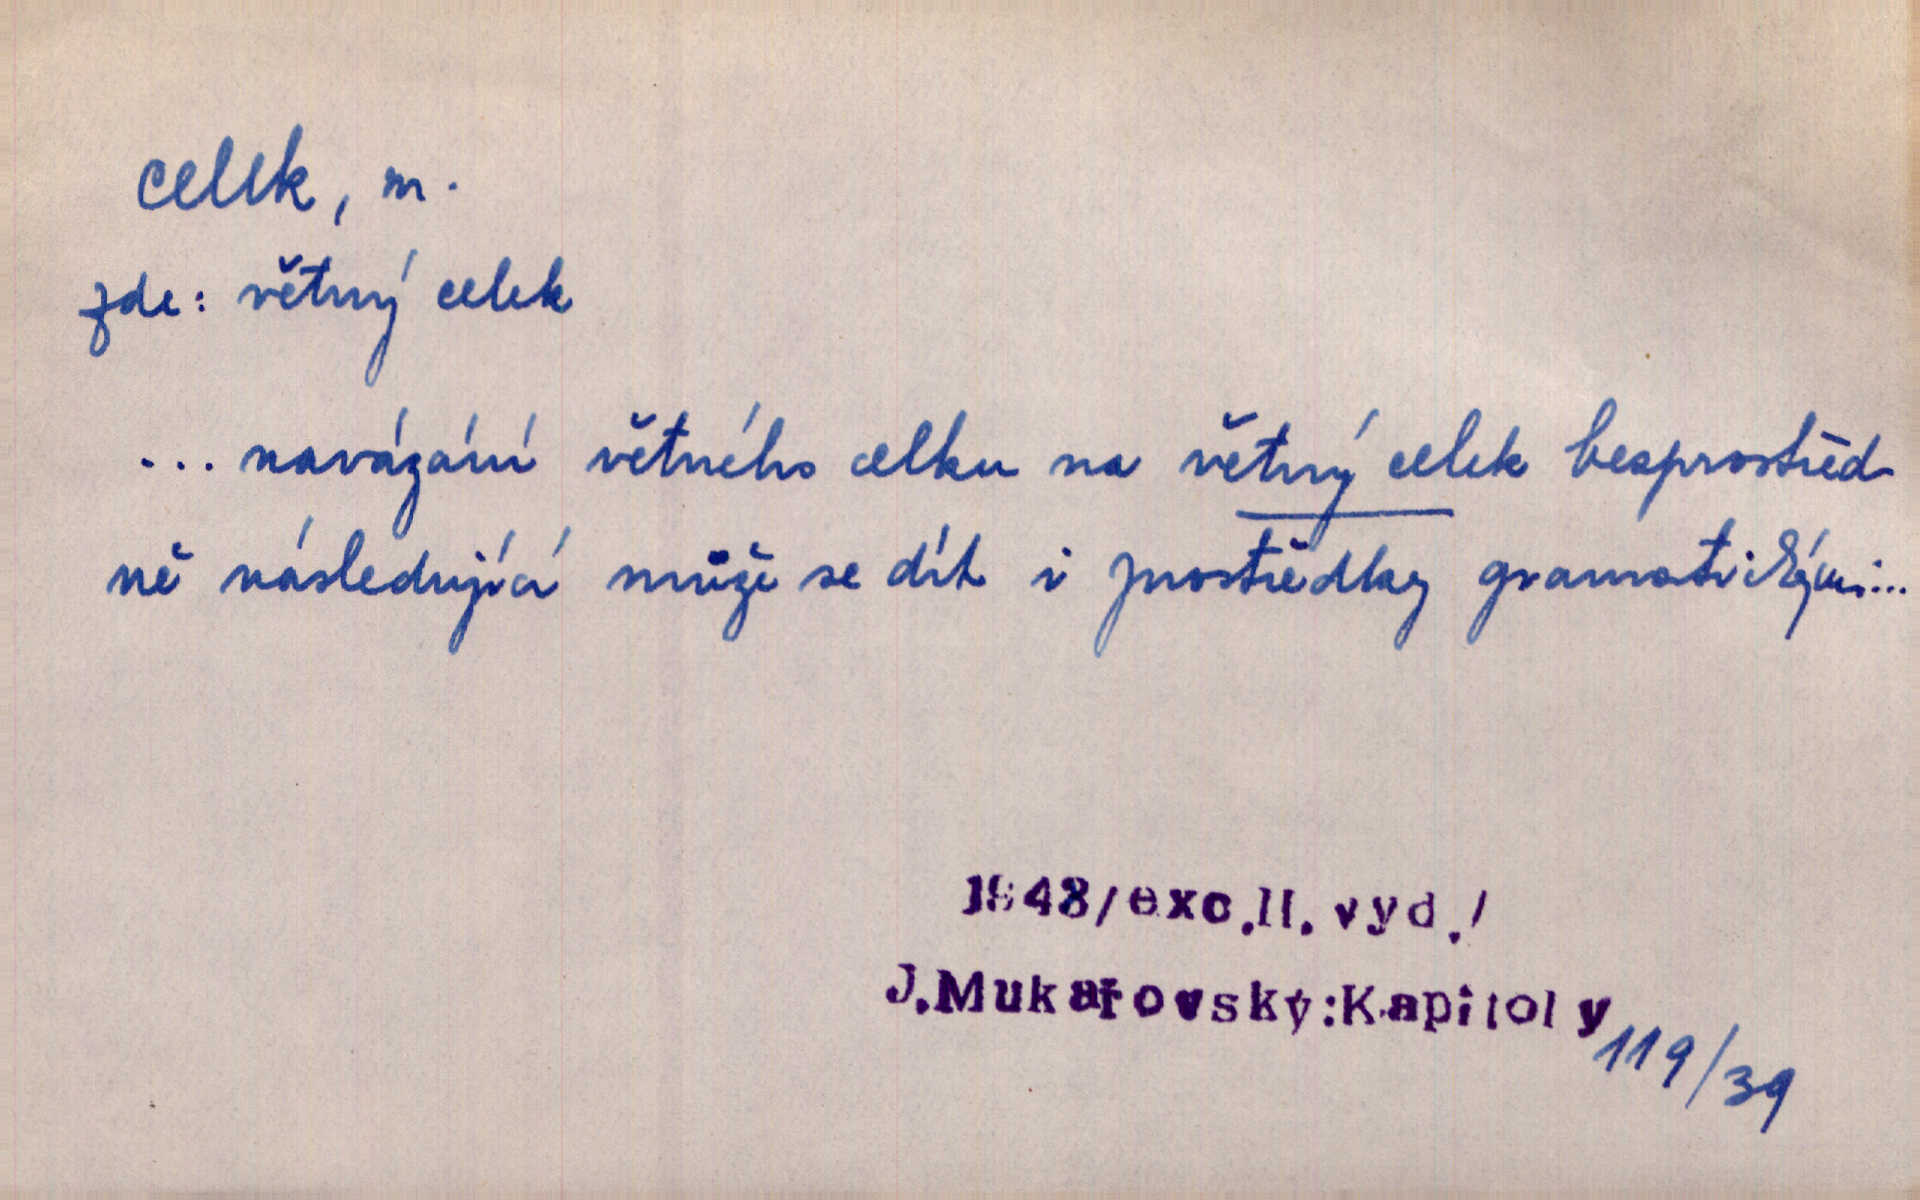 celek, m.
zde: větný celek
... navázání větného celku na větný celek bezprostřed
ně následující může se dít i prostředky gramatickými...
1948/exc.II.vyd./
J.Mukařovský:Kapitoly
119/39